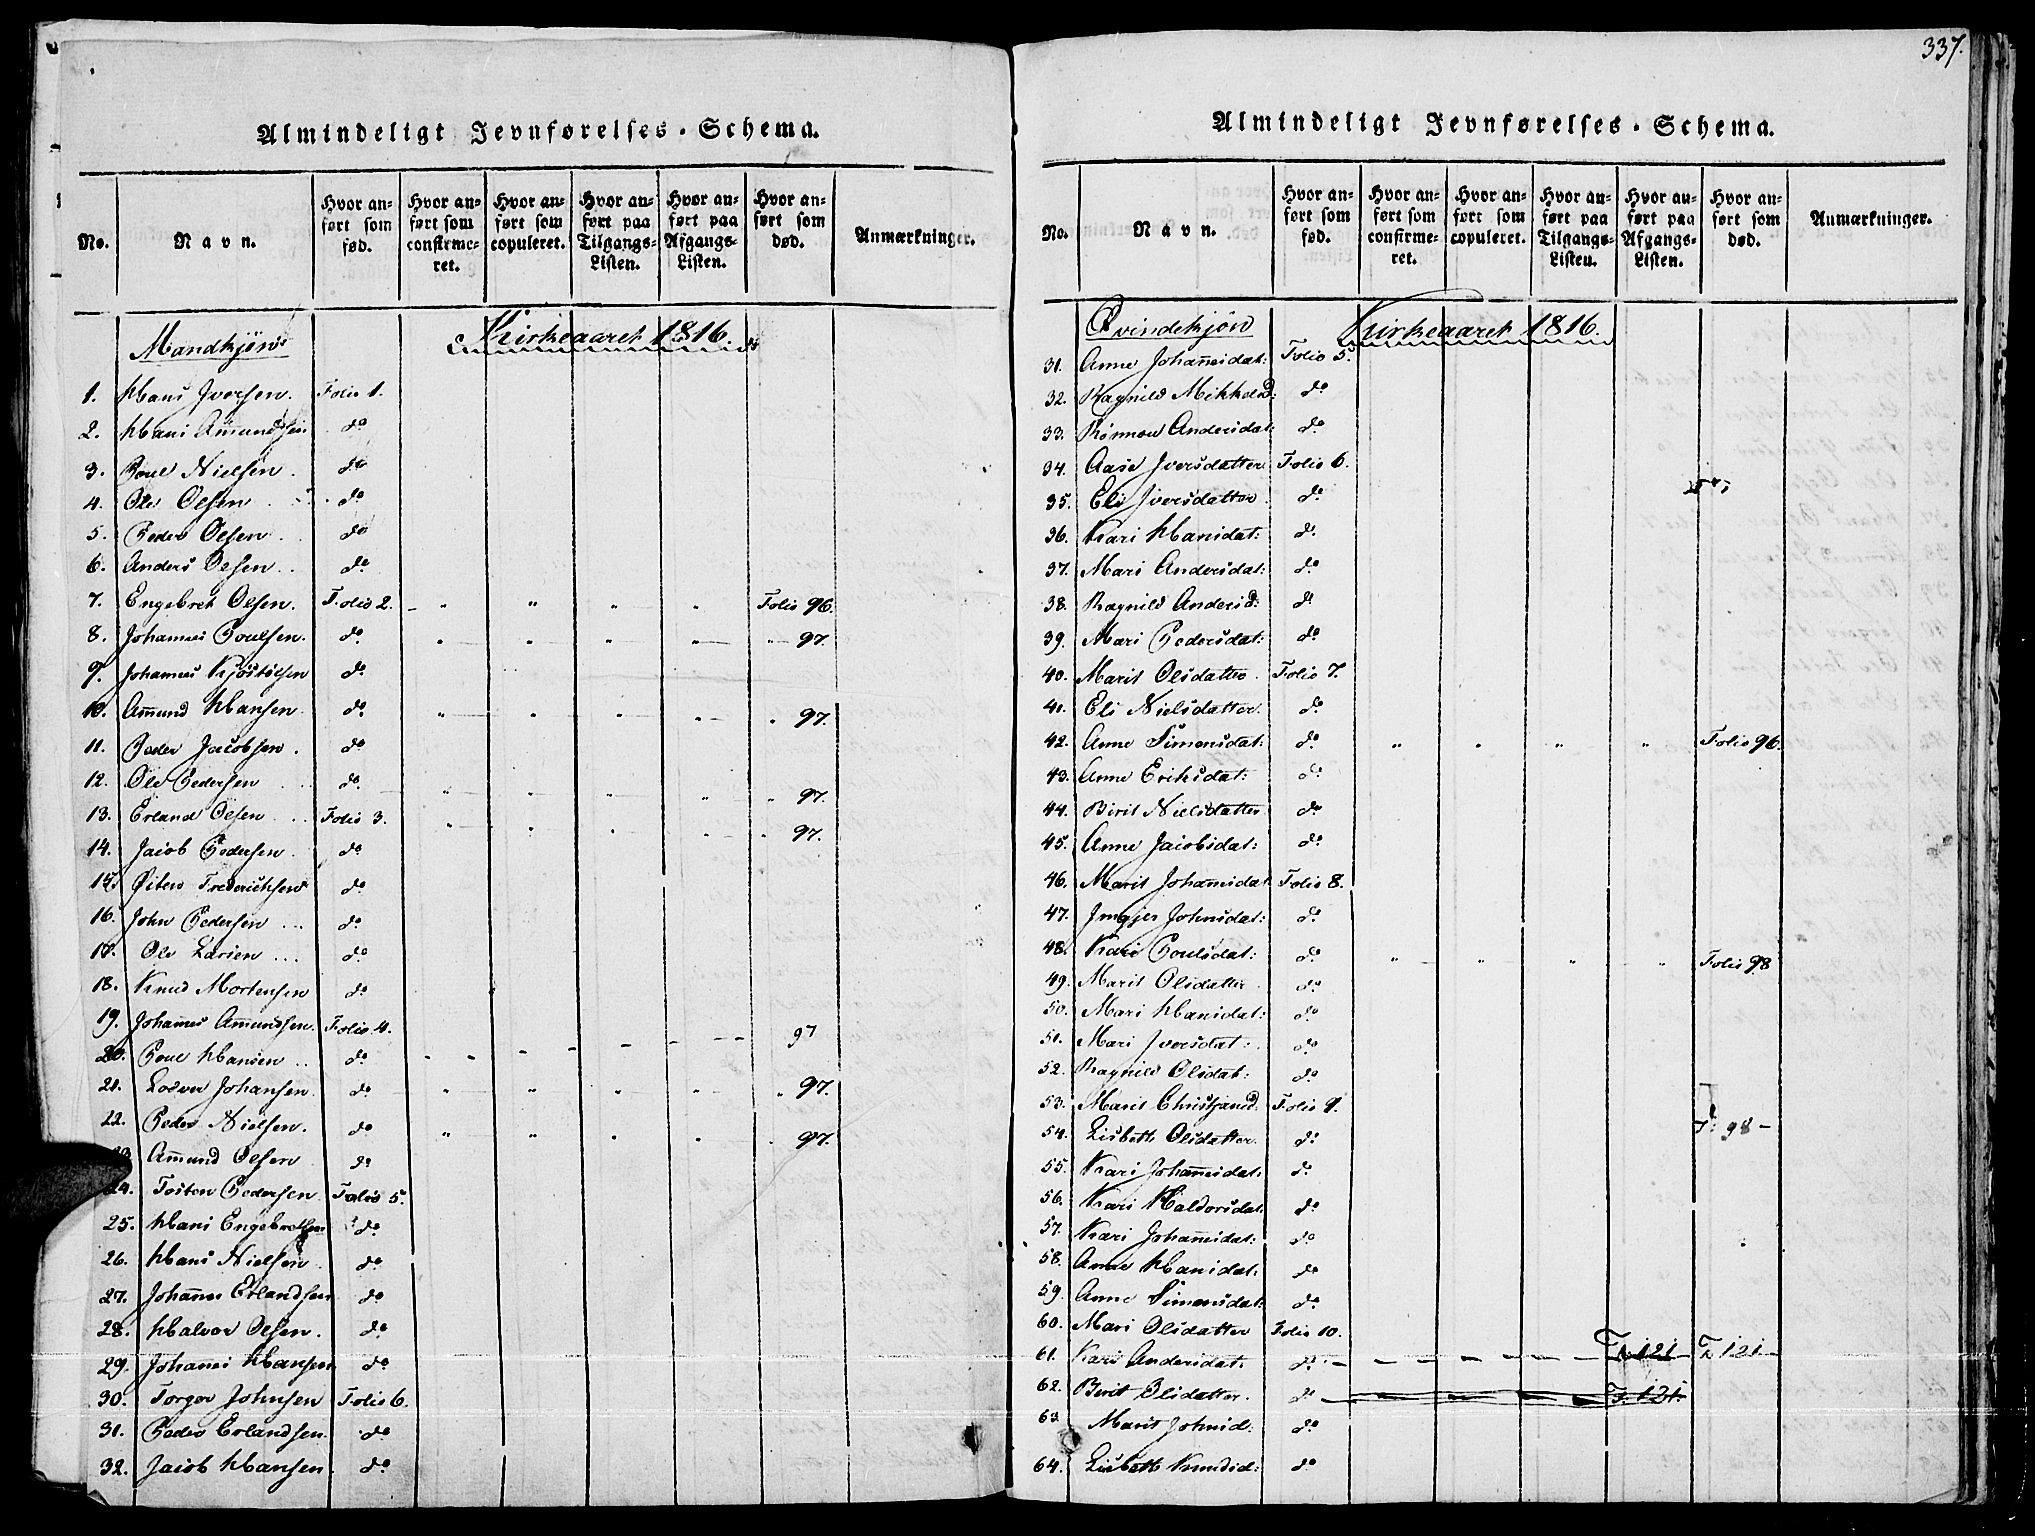 337.
Almindeligt Jevnførelses-Schema.
No. Navn. Hvor anført som fød. Hvor anført som confirmeret. Hvor anført som copuleret. Hvor anført paa Tilgangs-Listen. Hvor anført paa Afgangs-Listen. Hvor anført som død. Anmærkninger.
Mandkjøn Kirkeaaret 1816.
1. Hans Iversen. Folio 1.
2. Hans Amundsen do
3. Poul Nielsen. do
4. Ole Olsen do
5. Peder Olsen do
6. Anders Olsen do
7. Engebret Olsen. Folio 2. - " " " " Folio 96.
8. Johannes Poulsen. do " " " " " 97.
9. Johannes do
10. Amund Hansen do " " " " " 97.
11. Peder Jacobsen. do
12. Ole Pedersen do " " " " " 97.
13. Erland Olsen Folio 3. " " " " " 97.
14. Jacob Pedersen. do
15. Østen Frederichsen do
16. John Pedersen do
17. Ole Larsen do
18. Knud Mortensen do
19. Johannes Amundsen. Folio 4.
20. Poul Hansen do - - - - - 97
21. Lodver Johansen. do " " " " " 97.
22. Peder Nielsen. do " " " " " 97.
23 Amund Olsen do
24. Tosten Pedersen. Folio 5.
25. Hans Engebretsen do
26. Hans Nielsen do
27. Johannes Erlandsen do
28. Halvor Olsen. do
29. Johannes Hansen do
30. Torger Johnsen Folio 6.
31. Peder Erlandsen. do
32. Jacob Hansen. do
Almindeligt Jevnførelses-Schema.
No. Navn. Hvor anført som fød. Hvor anført som confirmeret. Hvor anført som copuleret. Hvor anført paa Tilgangs-Listen. Hvor anført paa Afgangs-Listen. Hvor anført som død. Anmærkninger.
Qvindekjøn Kirkeaaret 1816.
31. Anne Johannsdat: Folio 5.
32. Ragnild Mikkelsd: do
33. Rønnau Andersdat: do
34. Aase Iversdatter Folio 6.
35. Eli Iversdatter. do
36. Kari Hansdat: do
37. Mari Andersdat: do
38. Ragnild Andersd: do
39. Mari Pedersdat: do
40. Marit Olsdatter. Folio 7.
41. Eli Nielsdatter. do
42. Anne Simensdat: do " " " " Folio 96.
43. Anne Eriksdat: do
44. Birit Nielsdatter do
45. Anne Jacobsdat: do
46. Marit Johannsdat Folio 8.
47. Ingjer Johnsdat: do
48. Kari Poulsdat: do " " " " Folio 98
49. Marit Olsdatter do
50. Mari Hansdat: do
51. Mari Iversdat: do
52. Ragnild Olsdat: do
53. Marit Christjansd: Folio 9.
54. Lisbeth Olsdatter. do F: 98 -
55. Kari Johannsdat: do
56. Kari Haldorsdat. do
57. Kari Johannsdat: do
58. Anne Hansdat: do
59. Anne Simensdat: do
60. Mari Olsdatter Folio 10.
61. Kari Andersdat: do - - - - - F. 121 - F. 121 -
62. Birit Olsdatter. do F. 121.
63 Marit Johnsd: do
64. Lisbeth Knudsd: do